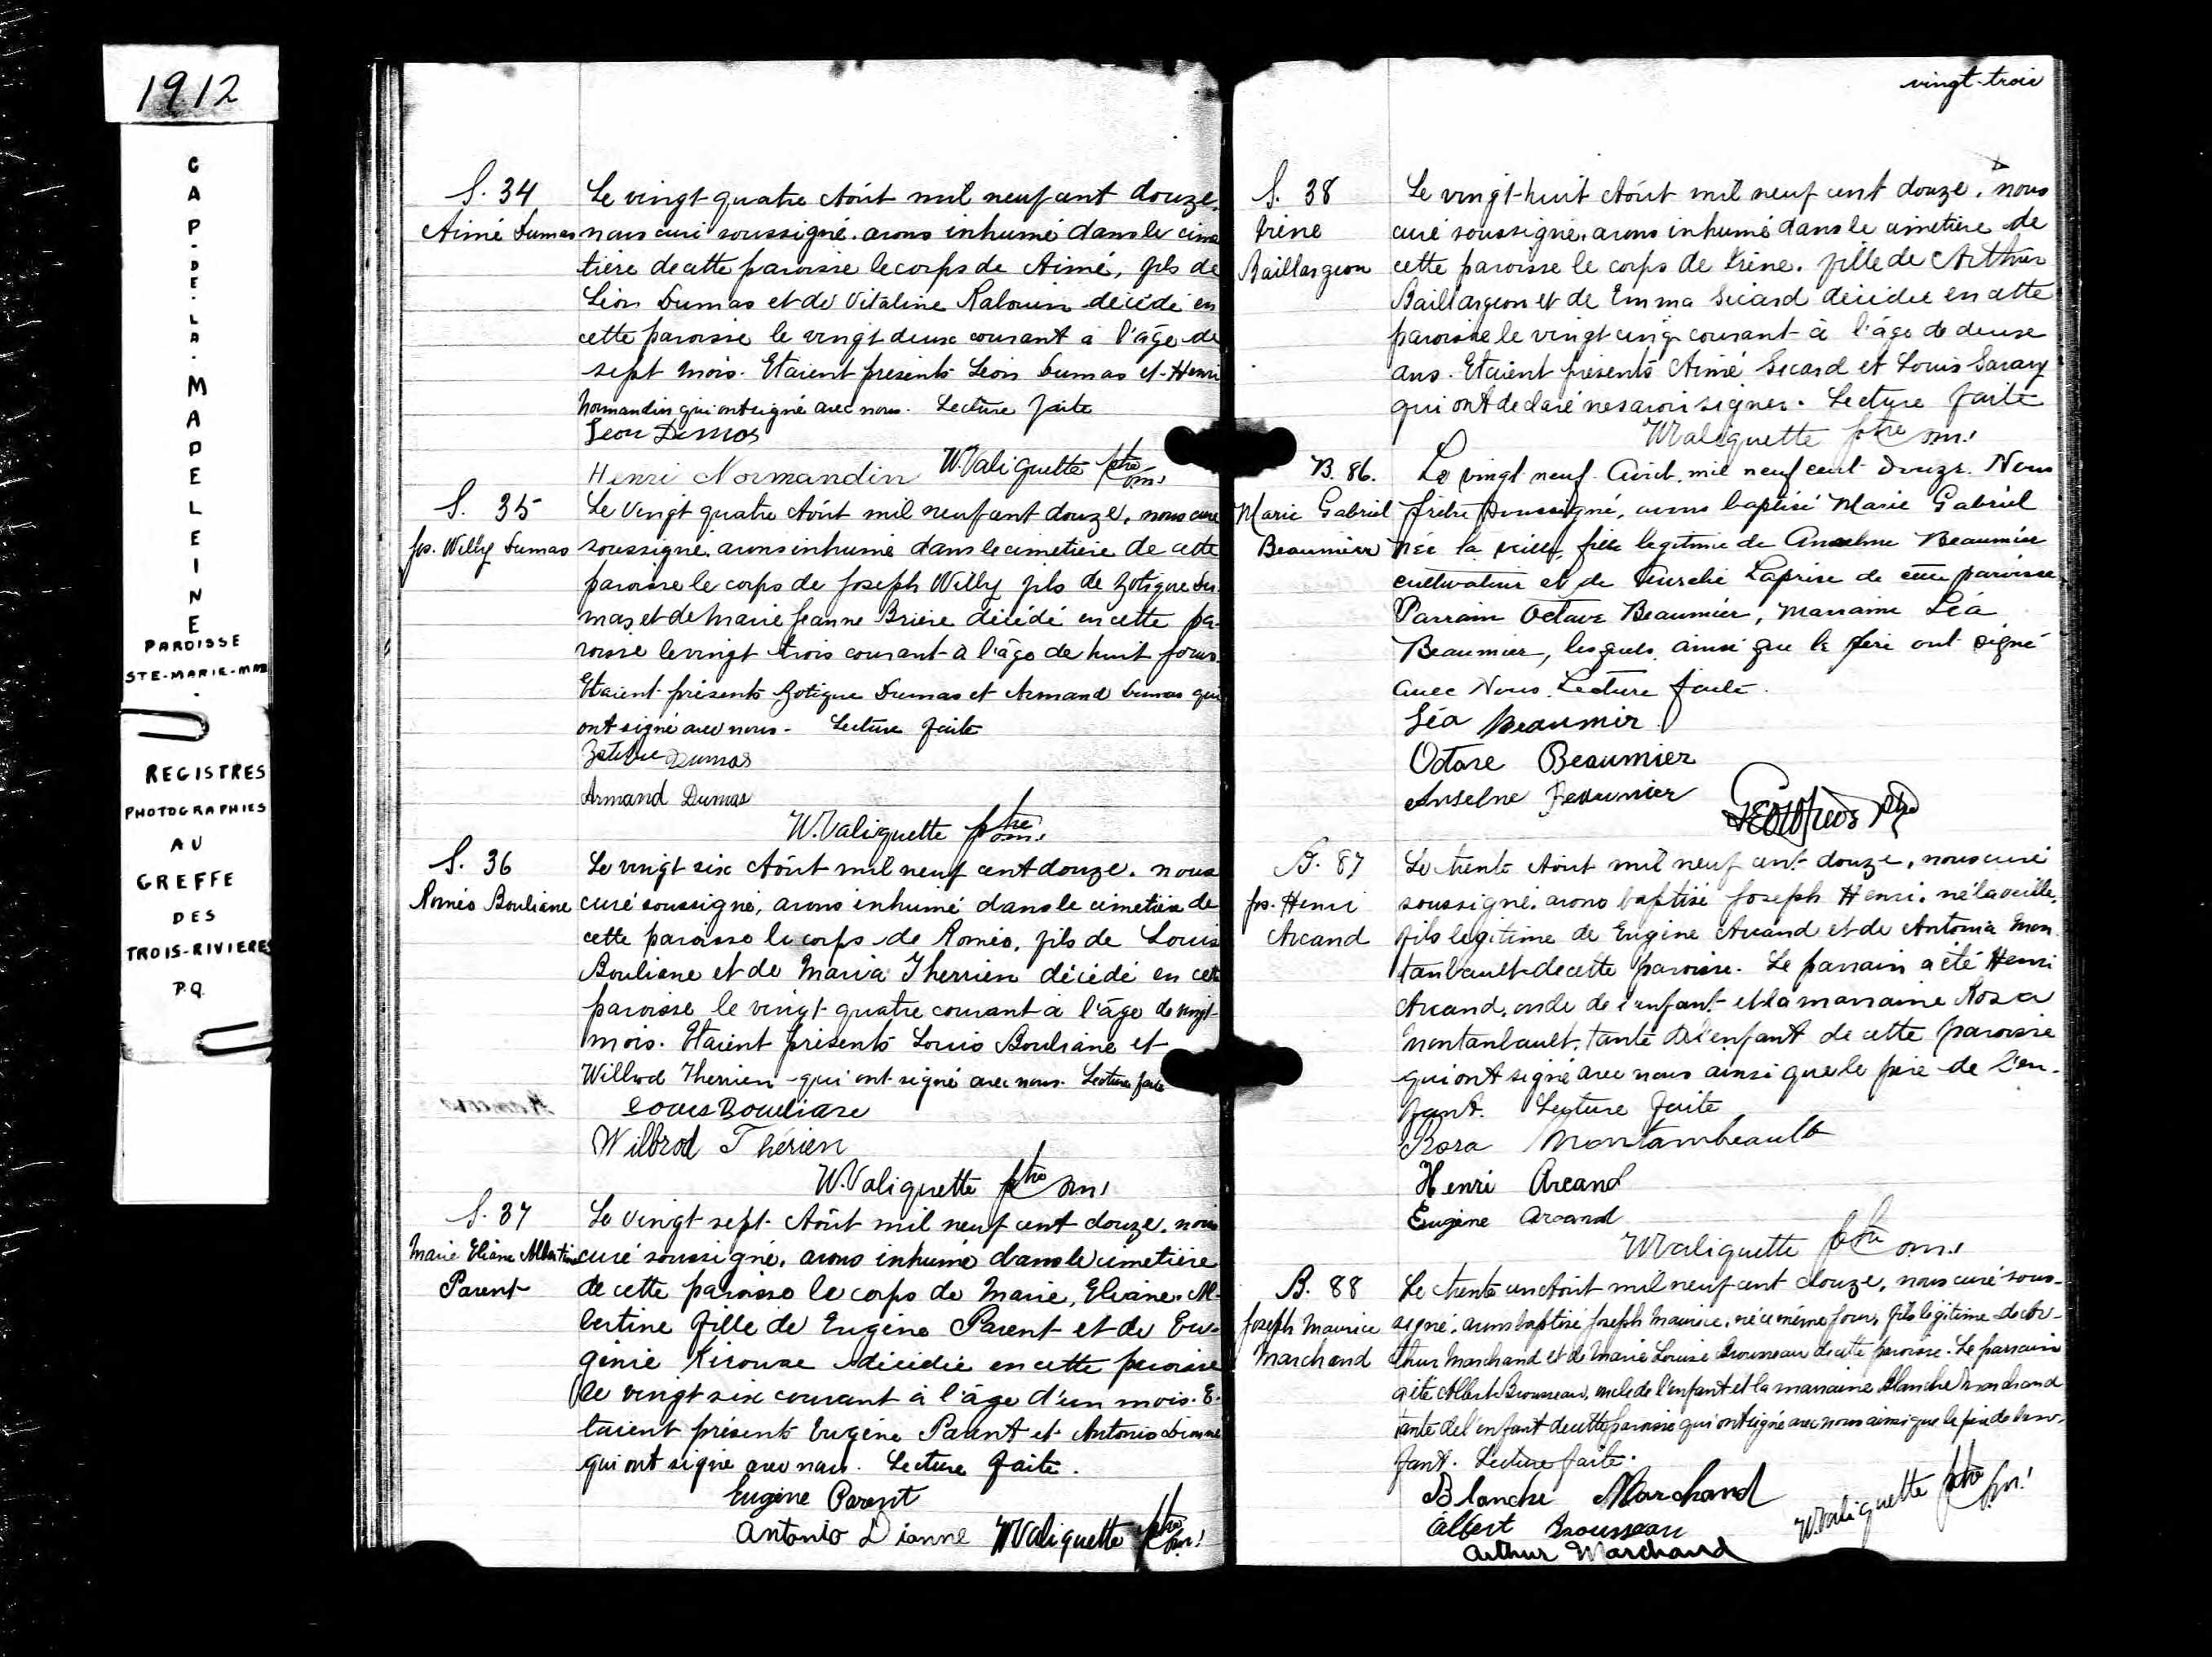 1912
CAP-DE-LA-MADELEINE
PAROISSE
STE-MARIE-MAD
REGISTRES
PHOTOGRAPHIES
AU
GREFFE
DES
TROIS-RIVIERES
P.Q.
S. 34
Aimé Dumas
Le vingt-quatre Août mil neuf cent douze,
nous curé soussigné, avons inhumé dans le cime
tière de cette paroisse le corps de Aimé, fils de
Léon Dumas et de Vitaline décédé en
cette paroisse le vingt deux courant à l'âge de
sept mois. Etaient présents Léon Dumas et Henri
Normandin qui ont signé avec nous. Lecture faite
Leon Dumas
Henri Normandin W. Valiquette ptre o.m.i
S. 35
Jos. Willy Dumas
Le Vingt quatre Août mil neuf cent douze, nous curé
soussigné, avons inhumé dans le cimetière de cette
paroisse le corps de Joseph Willy fils de Zotique Du-
mas et de Marie Jeanne Brière décédé en cette pa-
roisse le vingt trois courant à l'âge de huit jours.
Etaient présents Zotique Dumas et Armand Dumas qui
ont signé avec nous. Lecture faite
Dumas
Armand Dumas
W. Valiquette ptre o.m.i
S. 36
Roméo Bouliane
Le vingt six Août mil neuf cent douze, nous
curé soussigné, avons inhumé dans le cimetière de
cette paroisse le corps de Roméo, fils de Louis
Bouliane et de Maria Therrien décédé en cette
paroisse le vingt-quatre courant à l'âge de vingt
mois. Etaient présents Louis Bouliane et
Willrod Therrien qui ont signé avec nous. Lecture faite
Louis Bouliane
Wilbrod Thérien
W. Valiquette ptre o.m.i
S. 37
Marie Eliane Albertine
Parent
Le Vingt sept Août mil neuf cent douze, nous
curé soussigné, avons inhumé dans le cimetière
de cette paroisse le corps de Marie, Eliane, Al-
bertine fille de Eugène Parent et de Eu-
génie Kirouac décédée en cette paroisse
le vingt six courant à l'âge d'un mois. E-
taient présents Eugène Parent et Antonio Dionne
qui ont signé avec nous. Lecture faite.
Eugène Parent
Antonio Dionne W Valiquette ptre o.m.i
vingt-trois
S. 38
Irène
Baillargeon
Le vingt-huit Août mil neuf cent douze, nous
curé soussigné, avons inhumé dans le cimetière de
cette paroisse le corps de Irène, fille de Arthur
Baillargeon et de Emma Sicard décédée en cette
paroisse le vingt cinq courant à l'âge de deux
ans. Etaient présents Aimé Sicard et Louis Savary
qui ont déclaré ne savoir signer. Lecture faite
W Valiquette ptre o.m.i
B. 86.
Marie Gabriel
Beaumier
Le vingt neuf Août mil neuf cent douze. Nous
prêtre soussigné, avons baptisé Marie Gabriel
née la veille, fille légitime de Anselme Beaumier
cultivateur et de Laprise de cette paroisse.
Parrain Octave Beaumier, marraine Léa
Beaumier, lesquels, ainsi que le père ont signé
avec Nous. Lecture faite.
Léa Beaumier
Octave Beaumier
Anselme Beaumier
B. 87
Jos. Henri
Arcand
Le trente Août mil neuf cent douze, nous curé
soussigné, avons baptisé Joseph Henri, né la veille,
fils légitime de Eugène Arcand et de Antonia Mon
tanbault de cette paroisse. Le parrain a été Henri
Arcand, oncle de l'enfant et la marraine Rosa
Montanbault, tante de l'enfant de cette paroisse
qui ont signé avec nous ainsi que le père de l'en-
fant. Lecture faite
Rosa Montambeault
Henri Arcand
Eugène Arcand
W Valiquette ptre o.m.i
B. 88
Joseph Maurice
Marchand
Le trente un Août mil neuf cent douze, nous curé sous-
signé, avons baptisé Joseph Maurice, né ce même jour, fils légitime de Ar-
thur Marchand et de Marie Louise Brousseau de cette paroisse. Le parrain
a été Albert Brousseau, oncle de l'enfant et la marraine Blanche Marchand
tante de l'enfant de cette paroisse qui ont signé avec nous ainsi que le père de l'en-
fant. Lecture faite.
Blanche Marchand
Albert Brousseau W Valiquette ptre o.m.i
Arthur Marchand